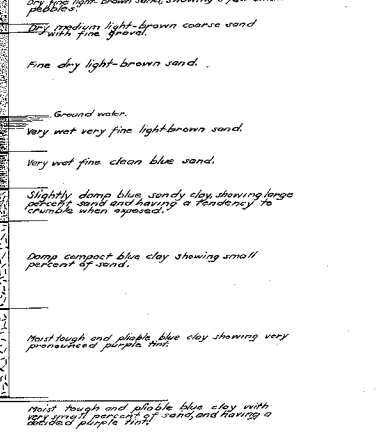 Dry fine light-brown sand, showing a few small
pebbles.
Dry medium light-brown coarse sand
with fine gravel.
Fine dry light-brown sand.
Ground water.
Very wet very fine light-brown sand.
Very wet fine clean blue sand.
Slightly damp blue, sandy clay, showing large
percent sand and having a tendency to
crumble when exposed.
Damp compact blue clay showing small
percent of sand.
Moist tough and pliable blue clay showing very
pronounced purple tint.
Moist tough and pliable blue clay with
very small percent of sand, and having a
decided purple tint.